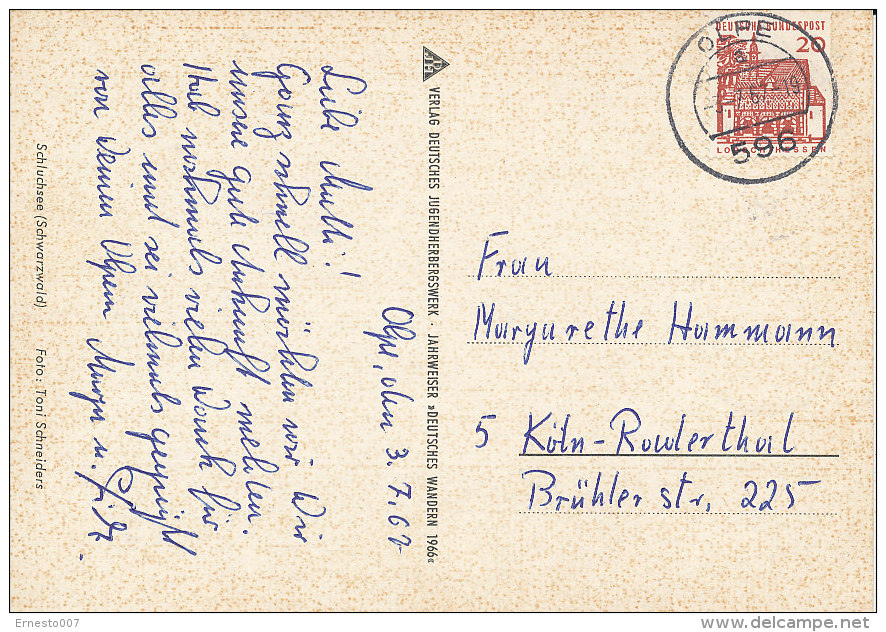 Olpe, den 3. 7. 67
Liebe Mutti!
Ganz schnell möchten wir Dir
unsere gute Ankunft melden.
Hab nochmals vielen Dank für
alles und sei vielmals gegrüßt
von Deinen Olpern
Schluchsee (Schwarzwald) Foto: Toni Schneiders
VERLAG DEUTSCHES JUGENDHERBERGSWERK · JAHRWEISER »DEUTSCHES WANDERN 1966«
DEUTSCHE BUNDESPOST
20
LORSCH/HESSEN
OLPE
596
Frau
Margarethe Hammann
5 Köln-Raderthal
Brühler str. 225
Ernesto007
delcampe.net